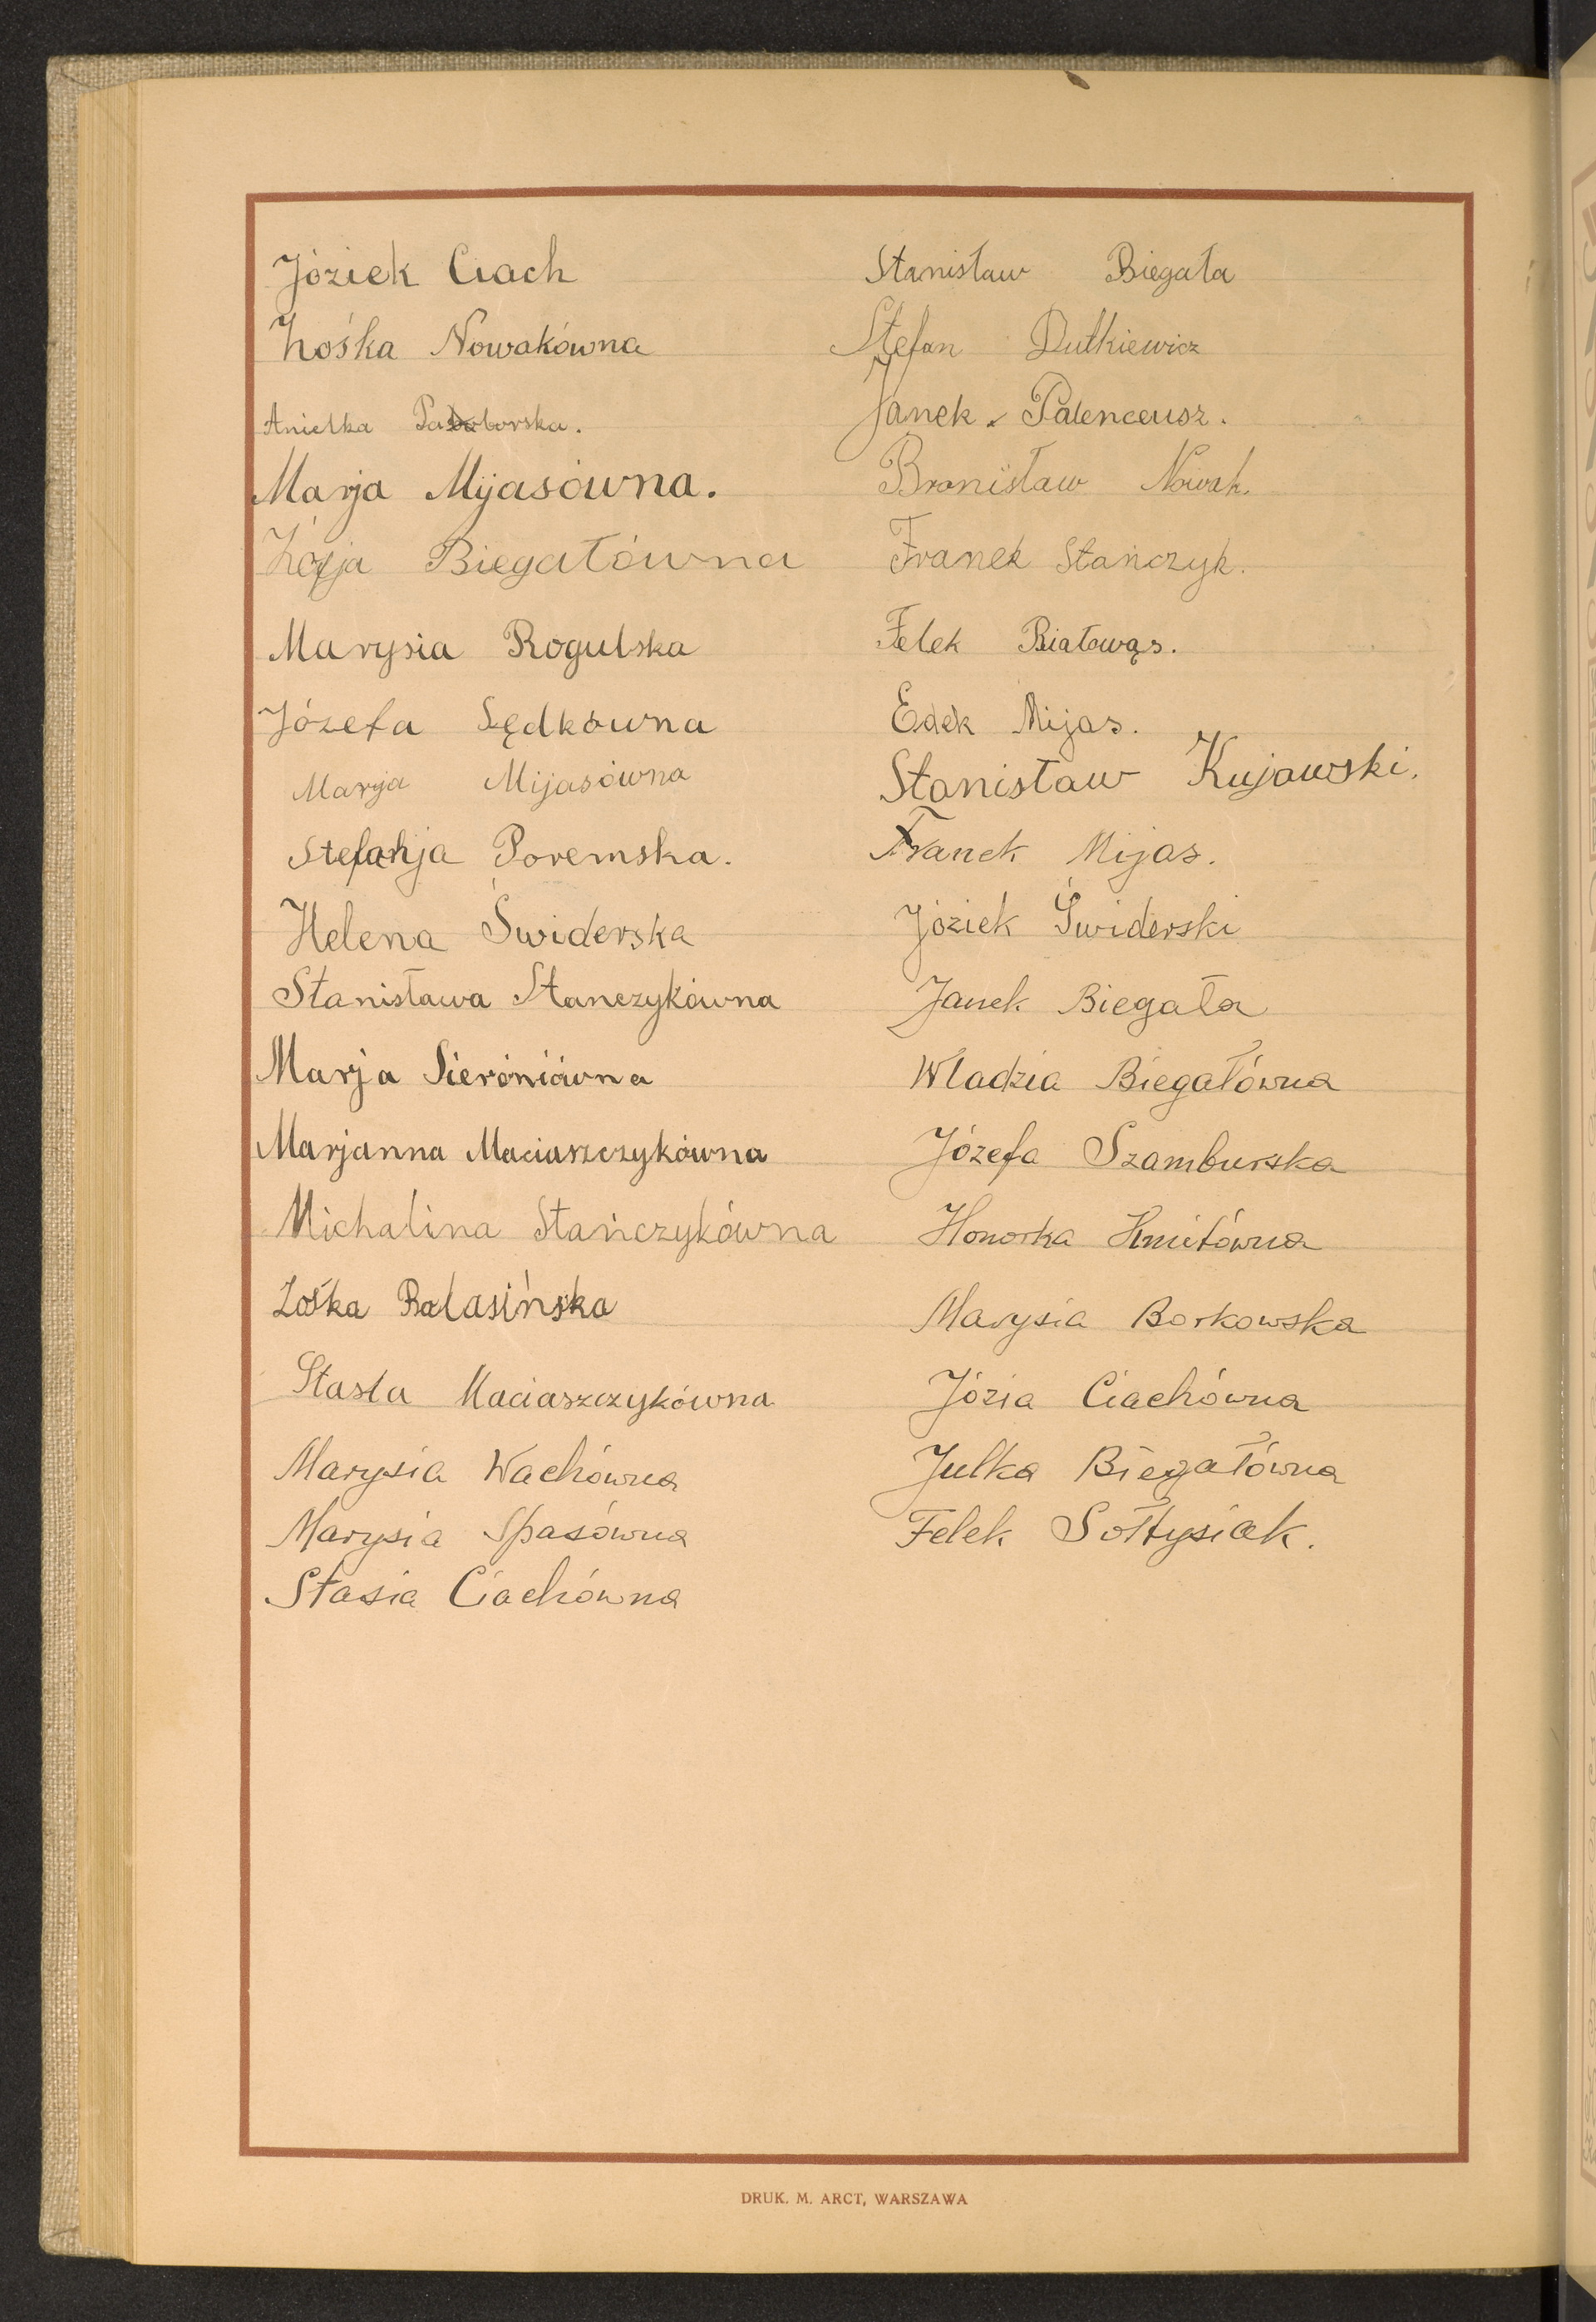 Józiek Ciach
Zośka Nowakówna
Anielka
Marja Mijasówna.
Zofja Biegałówna
Marysia Rogulska
Józefa Sędkówna
Marja Mijasówna
Stefanja Poremska.
Helena Świderska
Stanisława Stanczykówna
Marja Sieroniówna
Marjanna Maciaszczykówna
Michalina Stańczykówna
Zośka Balasińska
Stasia Maciaszczykówna
Marysia Wachówna
Marysia Spasówna
Stasia Ciachówna
Stanisław Biegała
Stefan Dutkiewicz
Janek Palenceusz.
Bronisław Nowak.
Franek Stańczyk.
Felek Białowąs.
Edek Mijas.
Stanisław Kujawski.
Franek Mijas.
Józiek Świderski
Janek Biegała
Władzia Biegałówna
Józefa Szamburska
Honorka Kmitówna
Marysia Borkowska
Józia Ciachówna
Julka Biegałówna
Felek Sołtysiak.
DRUK. M. ARCT, WARSZAWA